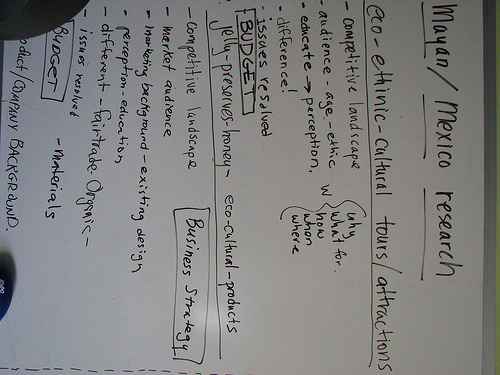 Mayan/Mexico research
eco-ethinic-cultural tours/attractions
- competitive landscape
- audience - age - ethic
W { why
what for.
how
when
where
- educate → perception.
- difference!
issues resolved
BUDGET
jelly-preserves-honey- eco-cultural-products
- competitive landscape
Business Strategy
- market audience
- marketing background - existing design
- perception - education
- different - fairtrade. Organic -
- issues resolved
- materials
BUDGET
oduct/Company BACKGROUND.